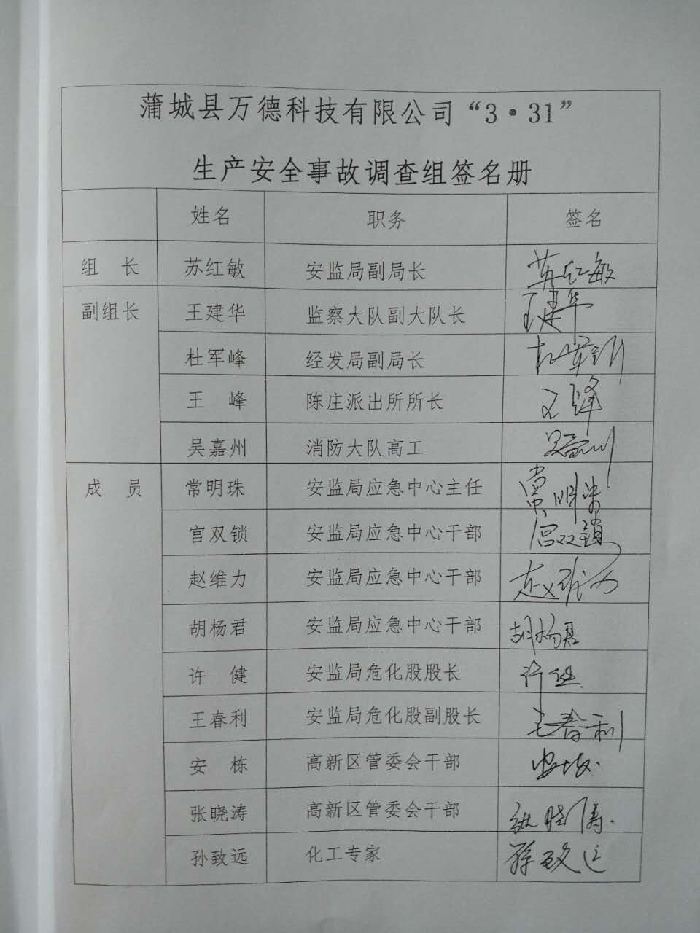 蒲城县万德科技有限公司“3·31”
生产安全事故调查组签名册
姓名 职务 签名
组 长 苏红敏 安监局副局长 苏红敏
副组长 王建华 监察大队副大队长 王建华
杜军峰 经发局副局长 杜军锋
王 峰 陈庄派出所所长 王锋
吴嘉州 消防大队高工 吴嘉州
成 员 常明珠 安监局应急中心主任 常明珠
宫双锁 安监局应急中心干部 宫双锁
赵维力 安监局应急中心干部 赵维力
胡杨君 安监局应急中心干部 胡杨君
许 健 安监局危化股股长 许健
王春利 安监局危化股副股长 王春利
安 栋 高新区管委会干部 安栋
张晓涛 高新区管委会干部 张晓涛
孙致远 化工专家 孙致远